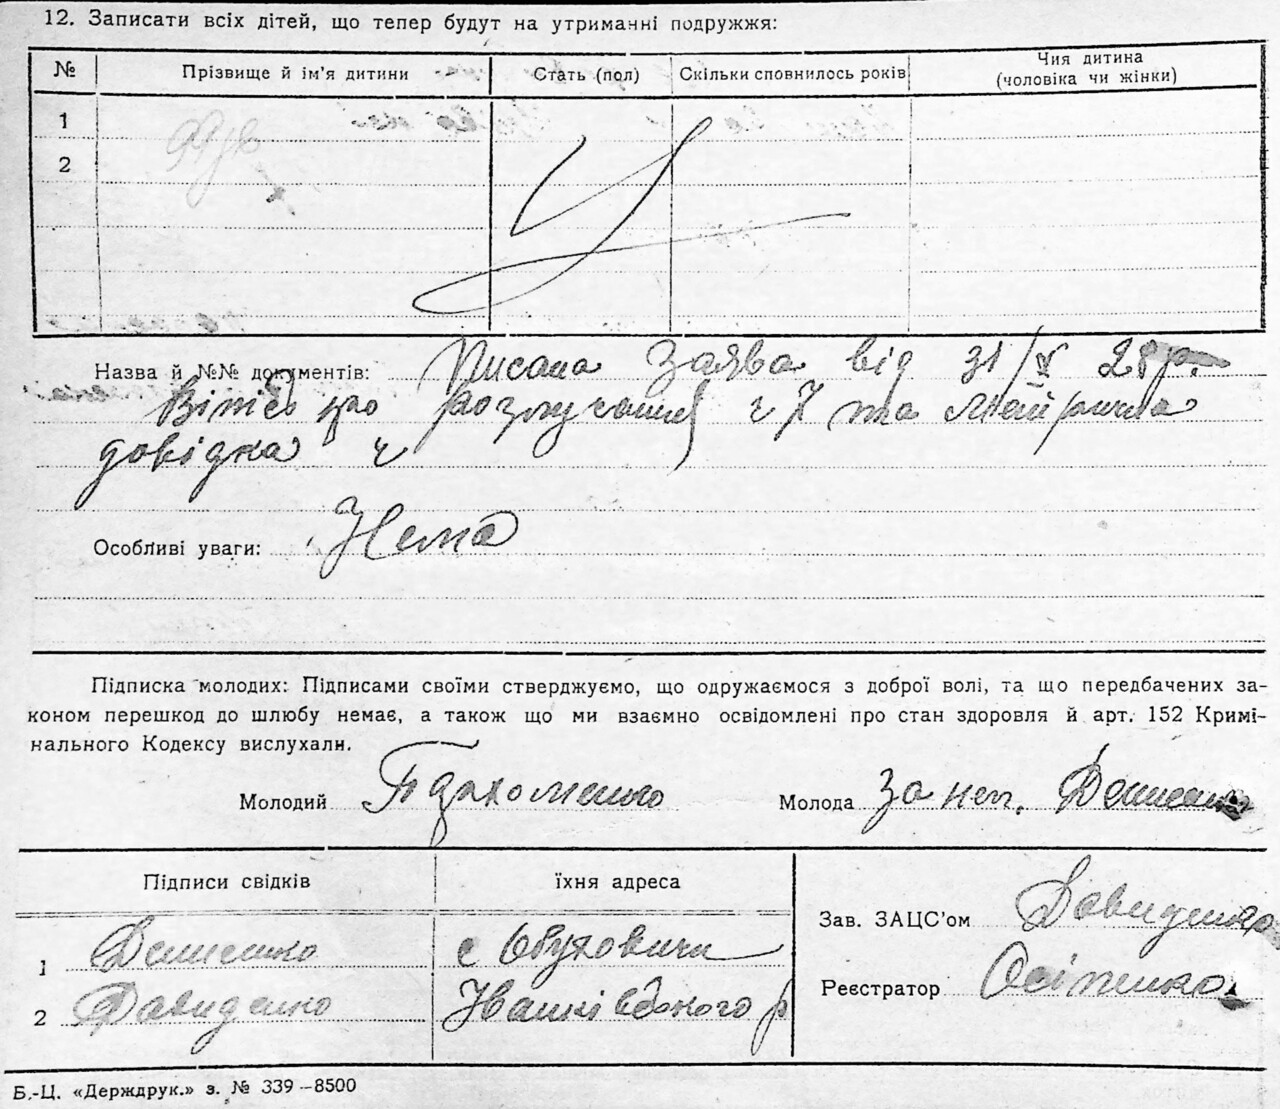 12. Записати всіх дітей, що тепер будут на утриманні подружжя:
№ Прізвище й ім'я дитини Стать (пол) Скільки сповнилось років Чия дитина (чоловіка чи жінки)
1
2
Назва й №№ документів: Писана Заява від 31/V 28 р.
Вітяг про розлучення ч 7 та Метрична
довідка ч
Особливі уваги: Нема
Підписка молодих: Підписами своїми стверджуємо, що одружаємося з доброї волі, та що передбачених за-
коном перешкод до шлюбу немає, а також що ми взаємно освідомлені про стан здоровля й арт. 152 Кримі-
нального Кодексу вислухали.
Молодий Молода За неп. Денисенко
Підписи свідків їхня адреса
Зав. ЗАЦС'ом Давиденко
1 Денисенко с Обуховичи
Реєстратор Осіпенко
2 Давиденко р
Б.-Ц. «Держдрук.» з. № 339—8500